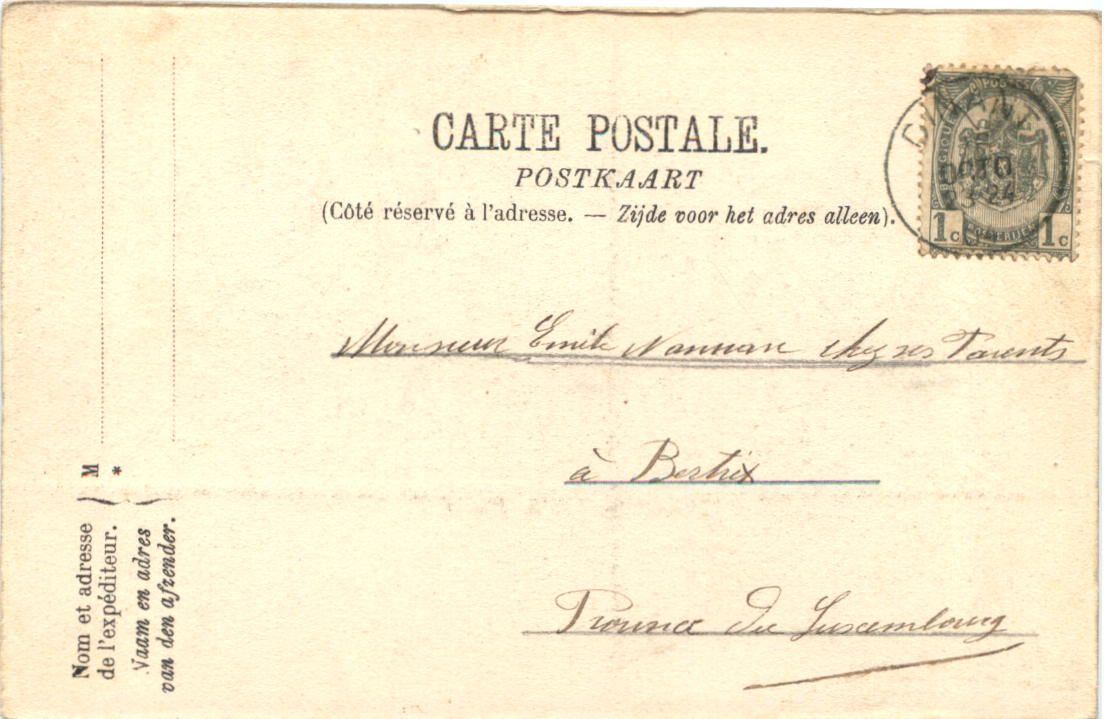 CARTE POSTALE.
POSTKAART
(Côté réservé à l'adresse. — Zijde voor het adres alleen).
DINANT
OCT 10
1 C 1 C
Monsieur Emile chez ses Parents
à Bertrix
Province du Luxembourg
M
*
Nom et adresse
de l'expéditeur.
Naam en adres
van den afzender.